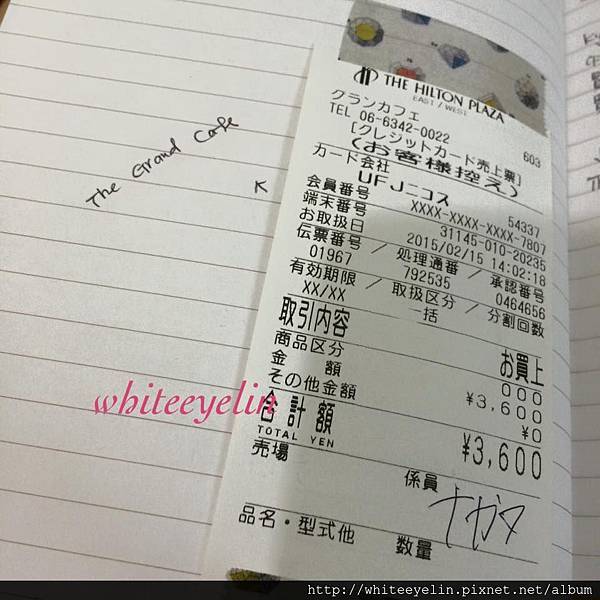 The Grand Cafe
K
THE HILTON PLAZA
EAST / WEST
グランカフェ 603
TEL 06-6342-0022
[クレジットカード売上票]
(お客様控え)
カード会社 54337
UFJニコス
会員番号 XXXX-XXXX-XXXX-7807
端末番号 31145-010-20235
お取扱日 2015/02/15 14:02:18
伝票番号 / 処理通番 / 承認番号
01967 792535 0464656
有効期限 / 取扱区分 / 分割回数
XX/XX 一括
取引内容 お買上
商品区分 000
金額 ¥3,600
その他金額 ¥0
合計額 ¥3,600
TOTAL YEN
売場 係員 ナガタ
品名・型式他 数量
whiteeyelin
http://whiteeyelin.pixnet.net/album